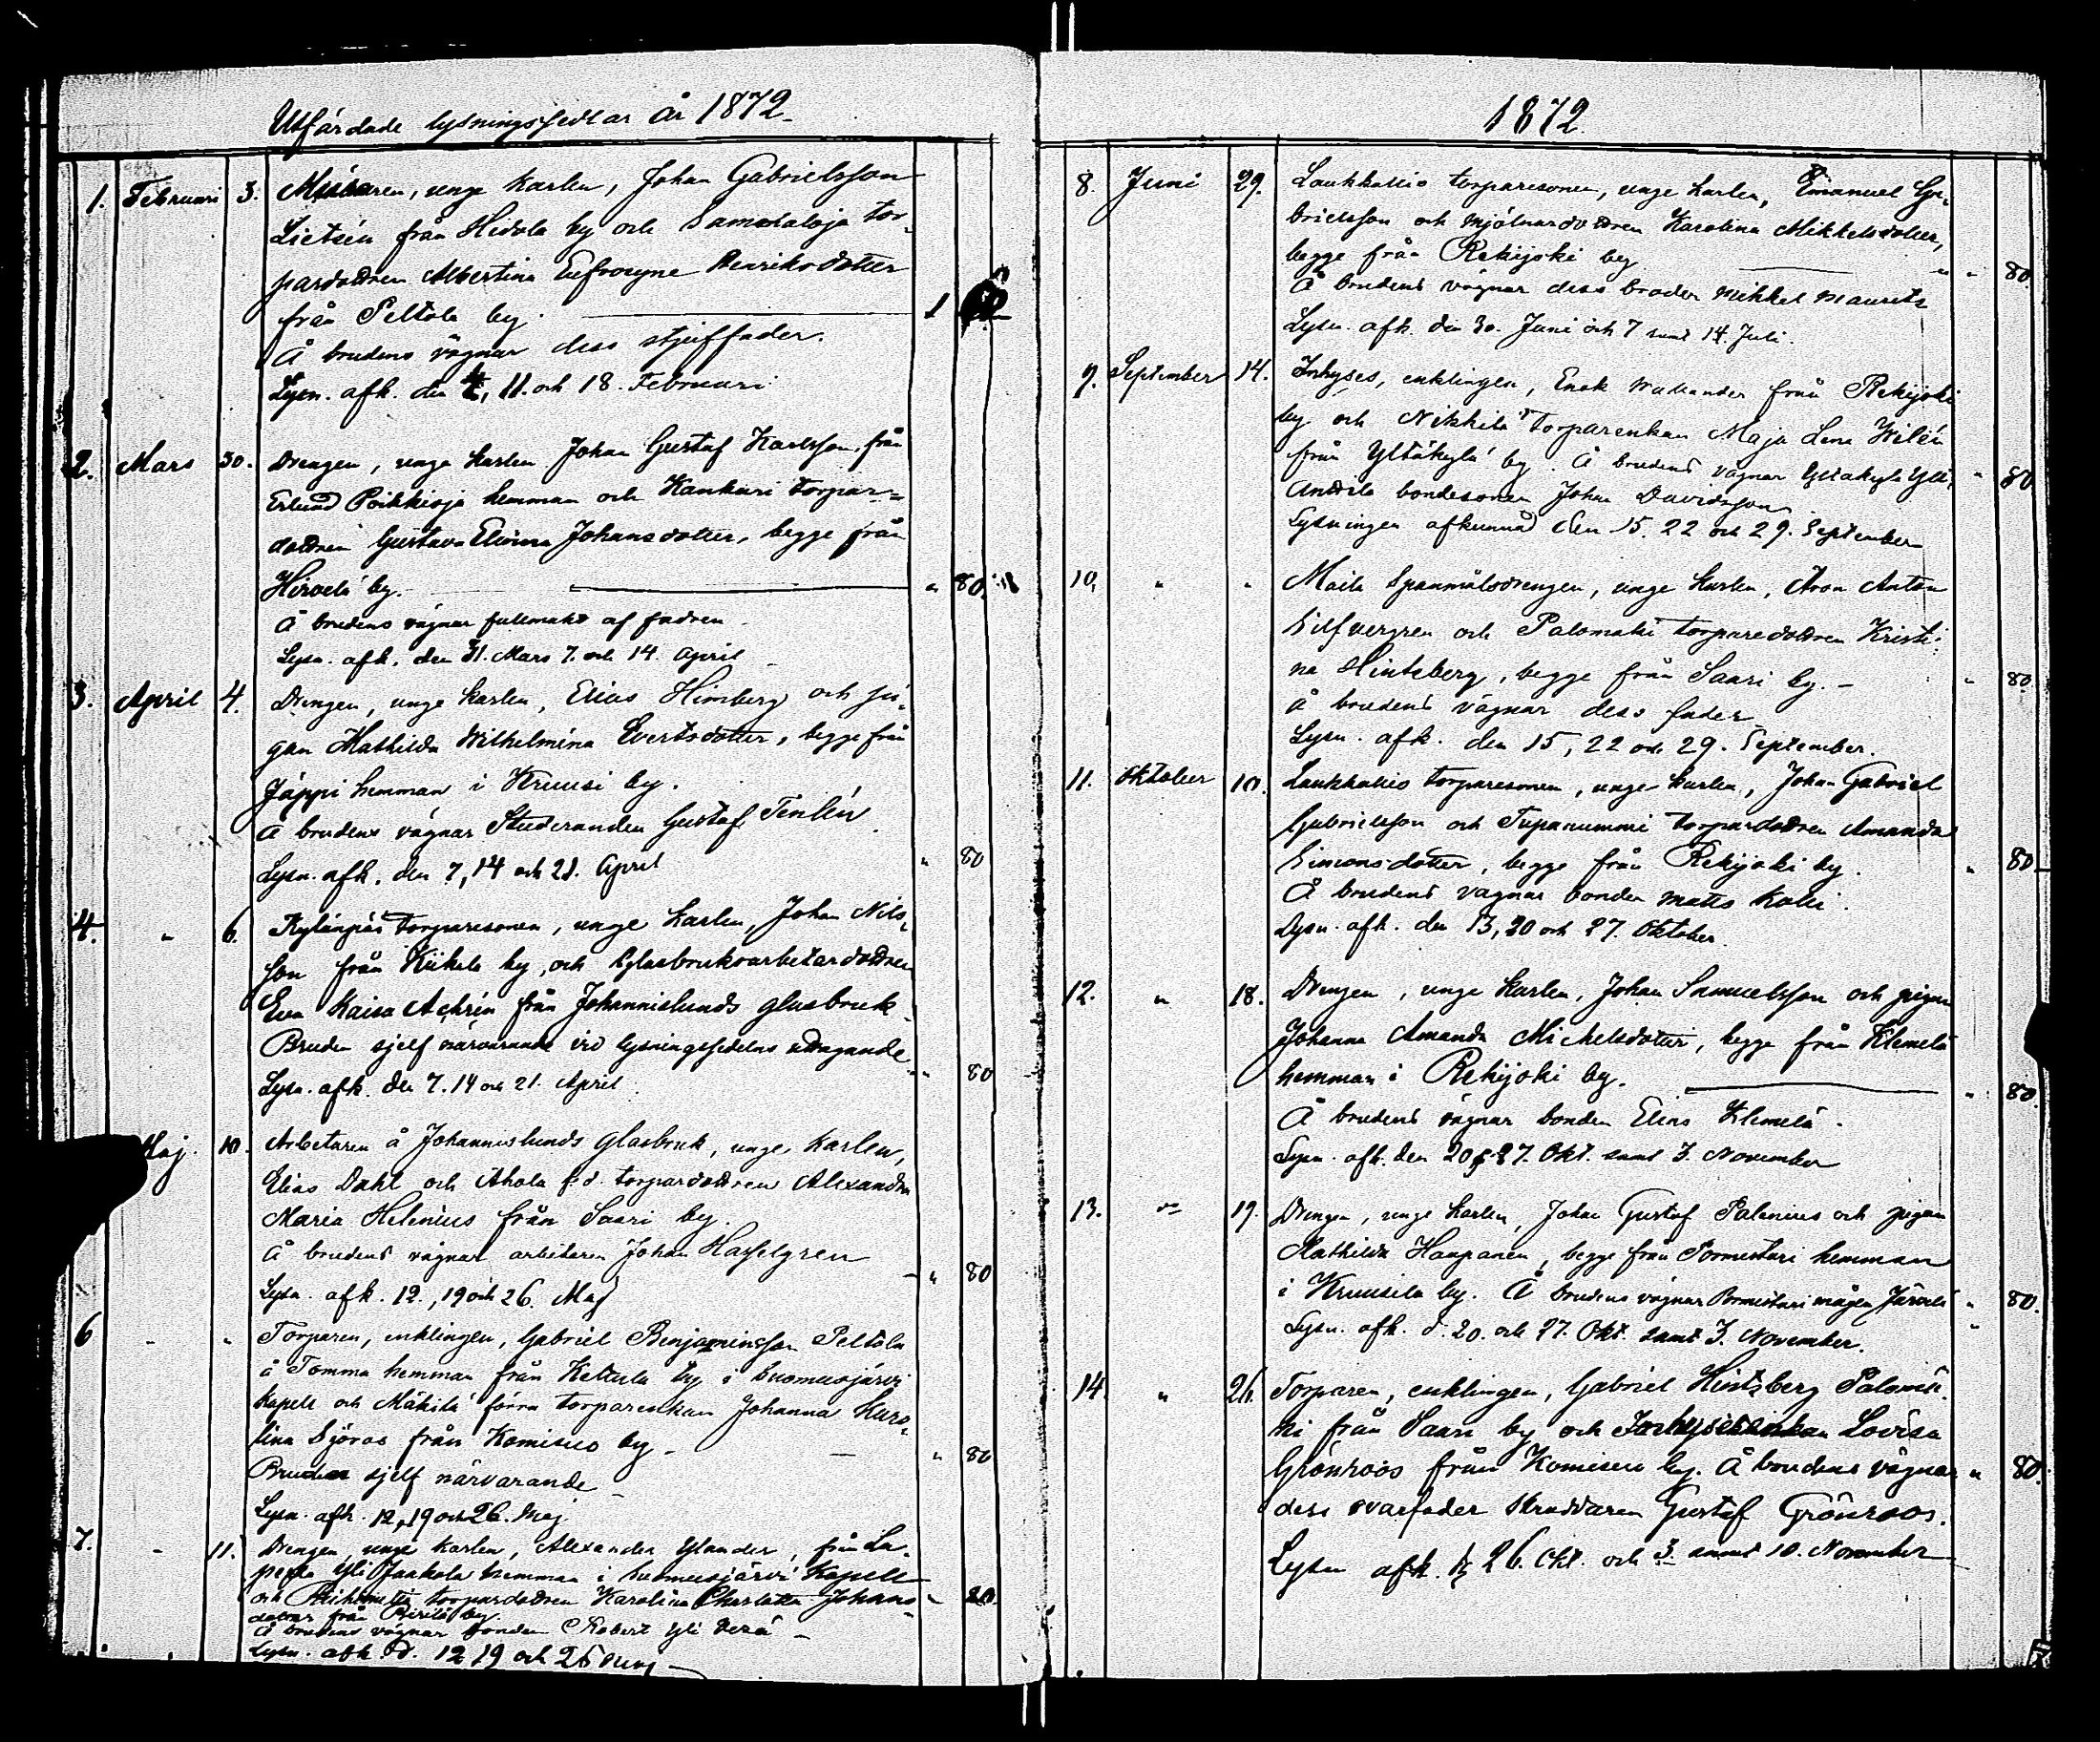 Utfärdade lysningssedlar år 1872.
1. Februari 3. unge karlen, Johan Gabrielsson
från Hidola by och tor-
pardottren Albertina Eufrosyne Henriksdotter
från Peltola by. 1
Å brudens vägnar dess stjuffader.
Lysn. afk. den 4, 11. och 18. Februari
2. Mars 30. Drengen, unge karlen Johan Gustaf Karlsson från
Erlund Poikkioja hemman och Kankari torpar-
dottren Gustava Johansdotter, begge från
Hirvelä by. " 80.
Å brudens vägnar fullmakt af fadren
Lysn. afk. den 31. Mars 7. och 14. April
3. April 4. Drengen, unge karlen, Elias Himberg och pi-
gan Mathilda Wilhelmina Evertsdotter, begge från
Jäppi hemman i Kruusi by.
Å brudens vägnar Studeranden Gustaf Tenlén
Lysn. afk. den 7, 14 och 21. April " 80
4. " 6. Kylänpää torparesonen, unge karlen, Johan Nils-
son från Kiikala by, och Glasbruksarbetardottren
Eva Kaisa Achrén från Johannislunds glasbruk.
Bruden sjelf närvarande vid lysningssedelns uttagande
Lysn. afk. den 7. 14 och 21. April " 80
Maj. 10. Arbetaren å Johannislunds Glasbruk, unge karlen,
Elias Dahl och Ahola f.d. torpardottren Alexandra
Maria Helenius från Saari by.
Å brudens vägnar arbetaren Johan Hasselgren
" 80
Lysn. afk. 12., 19 och 26. Maj
6 " " Torparen, enklingen, Gabriel Benjaminsson Peltola
å Tomma hemman från Kettula by i Suomusjärvi
kapell och Mäkilä förra torparenkan Johanna Karo-
lina Sjöros från Komisuo by. " 80
Bruden sjelf närvarande
Lysn. afk. 12, 19 och 26. Maj.
7. " 11. Drengen, unge karlen, Alexander Ylander, från La-
perla Yli Jaakola hemman i Suomusjärvi Kapell
och torpardottren Karolina Charlotta Johans- " 80.
dotter från by.
Å brudens vägnar bonden Robert Yli
Lysn. afk. d. 12 19 och 26 Maj
1872.
8. Juni 29. Laukkallio torparesonen, unge karlen, Emanuel Ga-
brielsson och mjölnardottren Karolina Mikkelsdotter,
begge från Rekijoki by " 80.
Å brudens vägnar dess broder Mikkel Maurits
Lysn. afk. den 30. Juni och 7 samt 14. Juli.
9. September 14. Inhyses, enklingen, Enok Wallander från Rekijoki
by och Nikkilä torparenkan Maja Lena Wilén
från Yltäkylä by. Å brudens vägnar Yltäkylä Yli-
Anttila bondesonen Johan Davidsson " 80
Lysningen afkunnad den 15. 22 och 29. September
10. " " Maila Spannmålsdrengen, unge karlen, Aron Anton
Silfvergren och Palomäki torparedottren Kristi-
na Hintsberg, begge från Saari by. " 80.
Å brudens vägnar dess fader
Lysn. afk. den 15, 22 och 29. September.
11. Oktober 10. Laukkallio torparesonen, unge karlen, Johan Gabriel
Gabrielsson och Tupanummi torpardottren Amanda
Simonsdotter, begge från Rekijoki by. " 80.
Å brudens vägnar bonden Matts Kolu.
Lysn. afk. den 13, 20 och 27. Oktober.
12. " 18. Drengen, unge karlen, Johan Samuelsson och pigan
Johanna Amanda Mickelsdotter, begge från Klemelä
hemman i Rekijoki by. " 80.
Å brudens vägnar bonden Elias Klemelä.
Lysn. afk. den 20, 27. Okt. samt 3. November
13. " 19. Drengen, unge karlen, Johan Gustaf Palenius och pigan
Mathilda Haapanen, begge från Pormestari hemman
i Kruusila by. Å brudens vägnar Pormestari mågen Järvelä " 80.
Lysn. afk. d. 20. och 27. Okt. samt 3. November.
14 " 26. Torparen, enklingen, Gabriel Hintsberg Palomä-
ki från Saari by och Inhysesenkan Lovisa
Grönroos från Komisuo by. Å brudens vägnar " 80.
dess svarfader Skräddaren Gustaf Grönroos.
Lysn afk. d. 26. Okt. och 3 samt 10. November